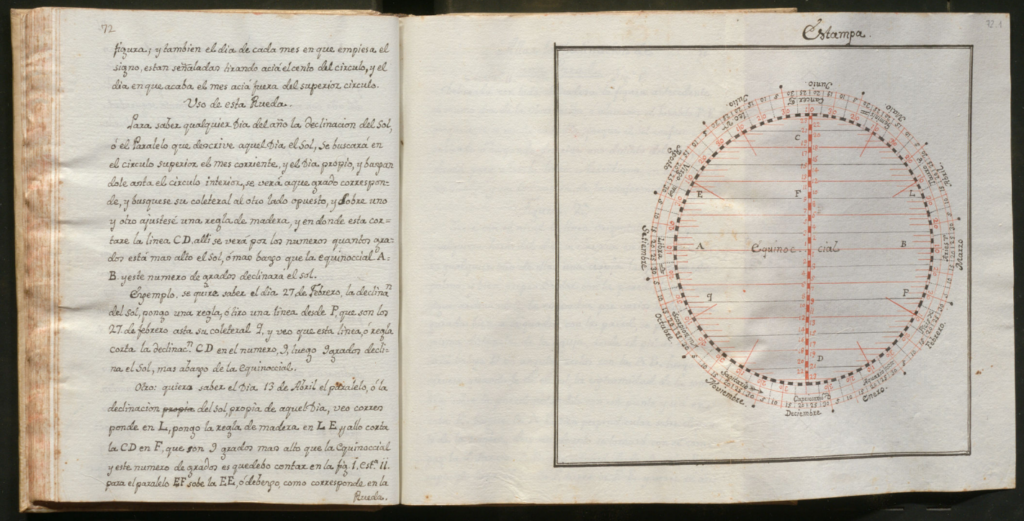 72
figura; y tambien el dia de cada mes en que empiesa el
signo, estan señaladas tirando acia el cento del circulo, y el
dia en que acaba el mes acia fuera del superior circulo.
Uso de esta Rueda.
Para saber qualquier Dia del año la declinacion del Sol,
ó el Paralelo que descrive aquel Dia el Sol, se buscara en
el circulo superior el mes corriente, y el Dia propio, y baxan
dole asta el circulo interior, se verá a que grado correspon-
de, y busquese su coleteral al otro lado opuesto, y sobre uno
y otro ajustesé una regla de madera, y en donde esta cor-
tare la linea CD, alli se verá por los numeros quantos gra-
dos está mas alto el Sol, ó mas baxo que la equinoccial A:
B y este numero de grados declinara el sol.
Exemplo. se quire saber el dia 27 de Febrero, la declina.n
del Sol, pongo una regla, ó tiro una linea desde P, que son los
27 de febrero asta su coleteral J, y veo que esta linea, ó regla
corta la declinac.n CD en el numero, 9, luego 9 grados decli-
na el Sol, mas abaxo de la Equinoccial.
Otro: quiero saber el Dia 13 de Abril el paralelo, ó la
declinacion propia del Sol, propia de aquel Dia, veo corres
ponde en L, pongo la regla de madera en L E, y allo corta
la CD en F, que son 9 grados mas alto que la Equinoccial
y este numero de grados es que debo contar en la fig. 1, est.ª 11.
para el paralelo EF sobe la EE, ó debaxo, como corresponde, en la
Rueda.
Estampa.
Junio
Cancer
Julio
Leo
Agosto
Setiembre
Libra
Octubre
Noviembre
Deciembre
Capricornio
Enero
Febrero
Marzo
Abril
Mayo
C
E
F
L
A
Equinoc cial
B
J
P
D